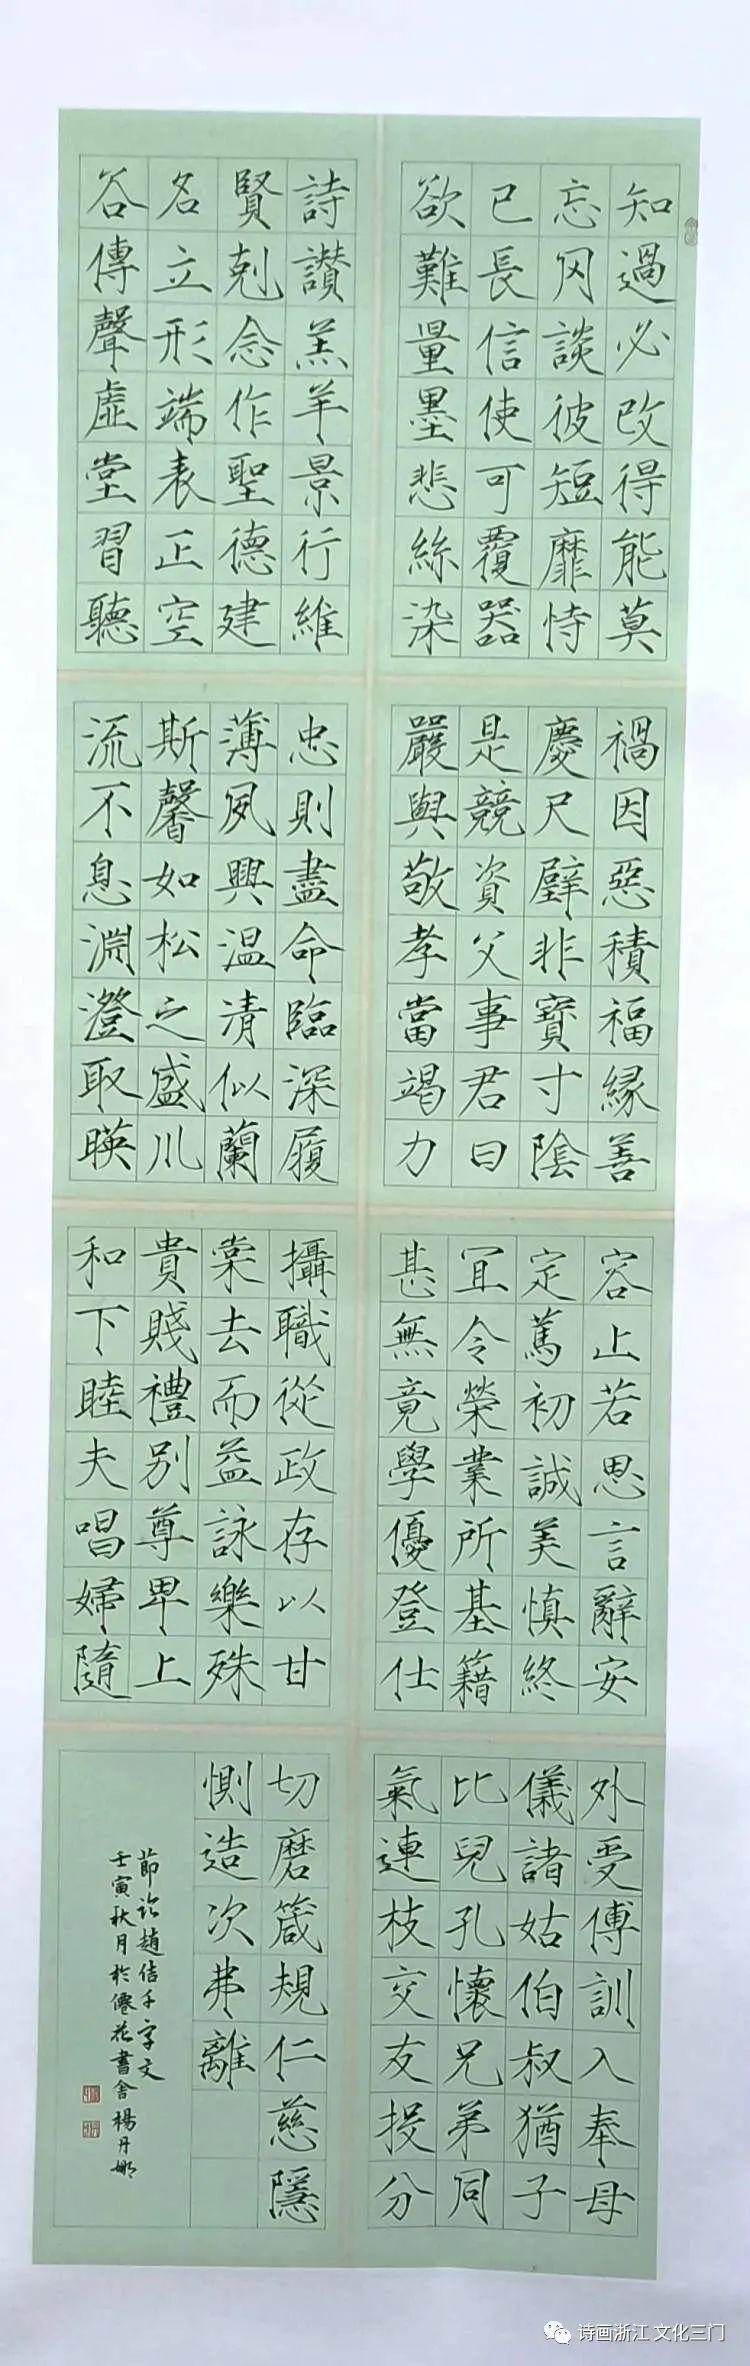 知過必改得能莫
忘罔談彼短靡恃
已長信使可覆器
欲難量墨悲絲染
詩讚羔羊景行維
賢剋念作聖德建
名立形端表正空
谷傳聲虛堂習聽
禍因惡積福緣善
慶尺璧非寶寸陰
是競資父事君曰
嚴與敬孝當竭力
忠則盡命臨深履
薄夙興温清似蘭
斯馨如松之盛川
流不息淵澄取暎
容止若思言辭安
定篤初誠美慎終
宜令榮業所基籍
甚無竟學優登仕
攝職從政存以甘
棠去而益詠樂殊
貴賤禮別尊卑上
和下睦夫唱婦隨
外受傅訓入奉母
儀諸姑伯叔猶子
比兒孔懷兄弟同
氣連枝交友投分
切磨箴規仁慈隱
惻造次弗離
節臨趙佶千字文
壬寅秋月於僊花書舍楊丹娜
诗画浙江 文化三门